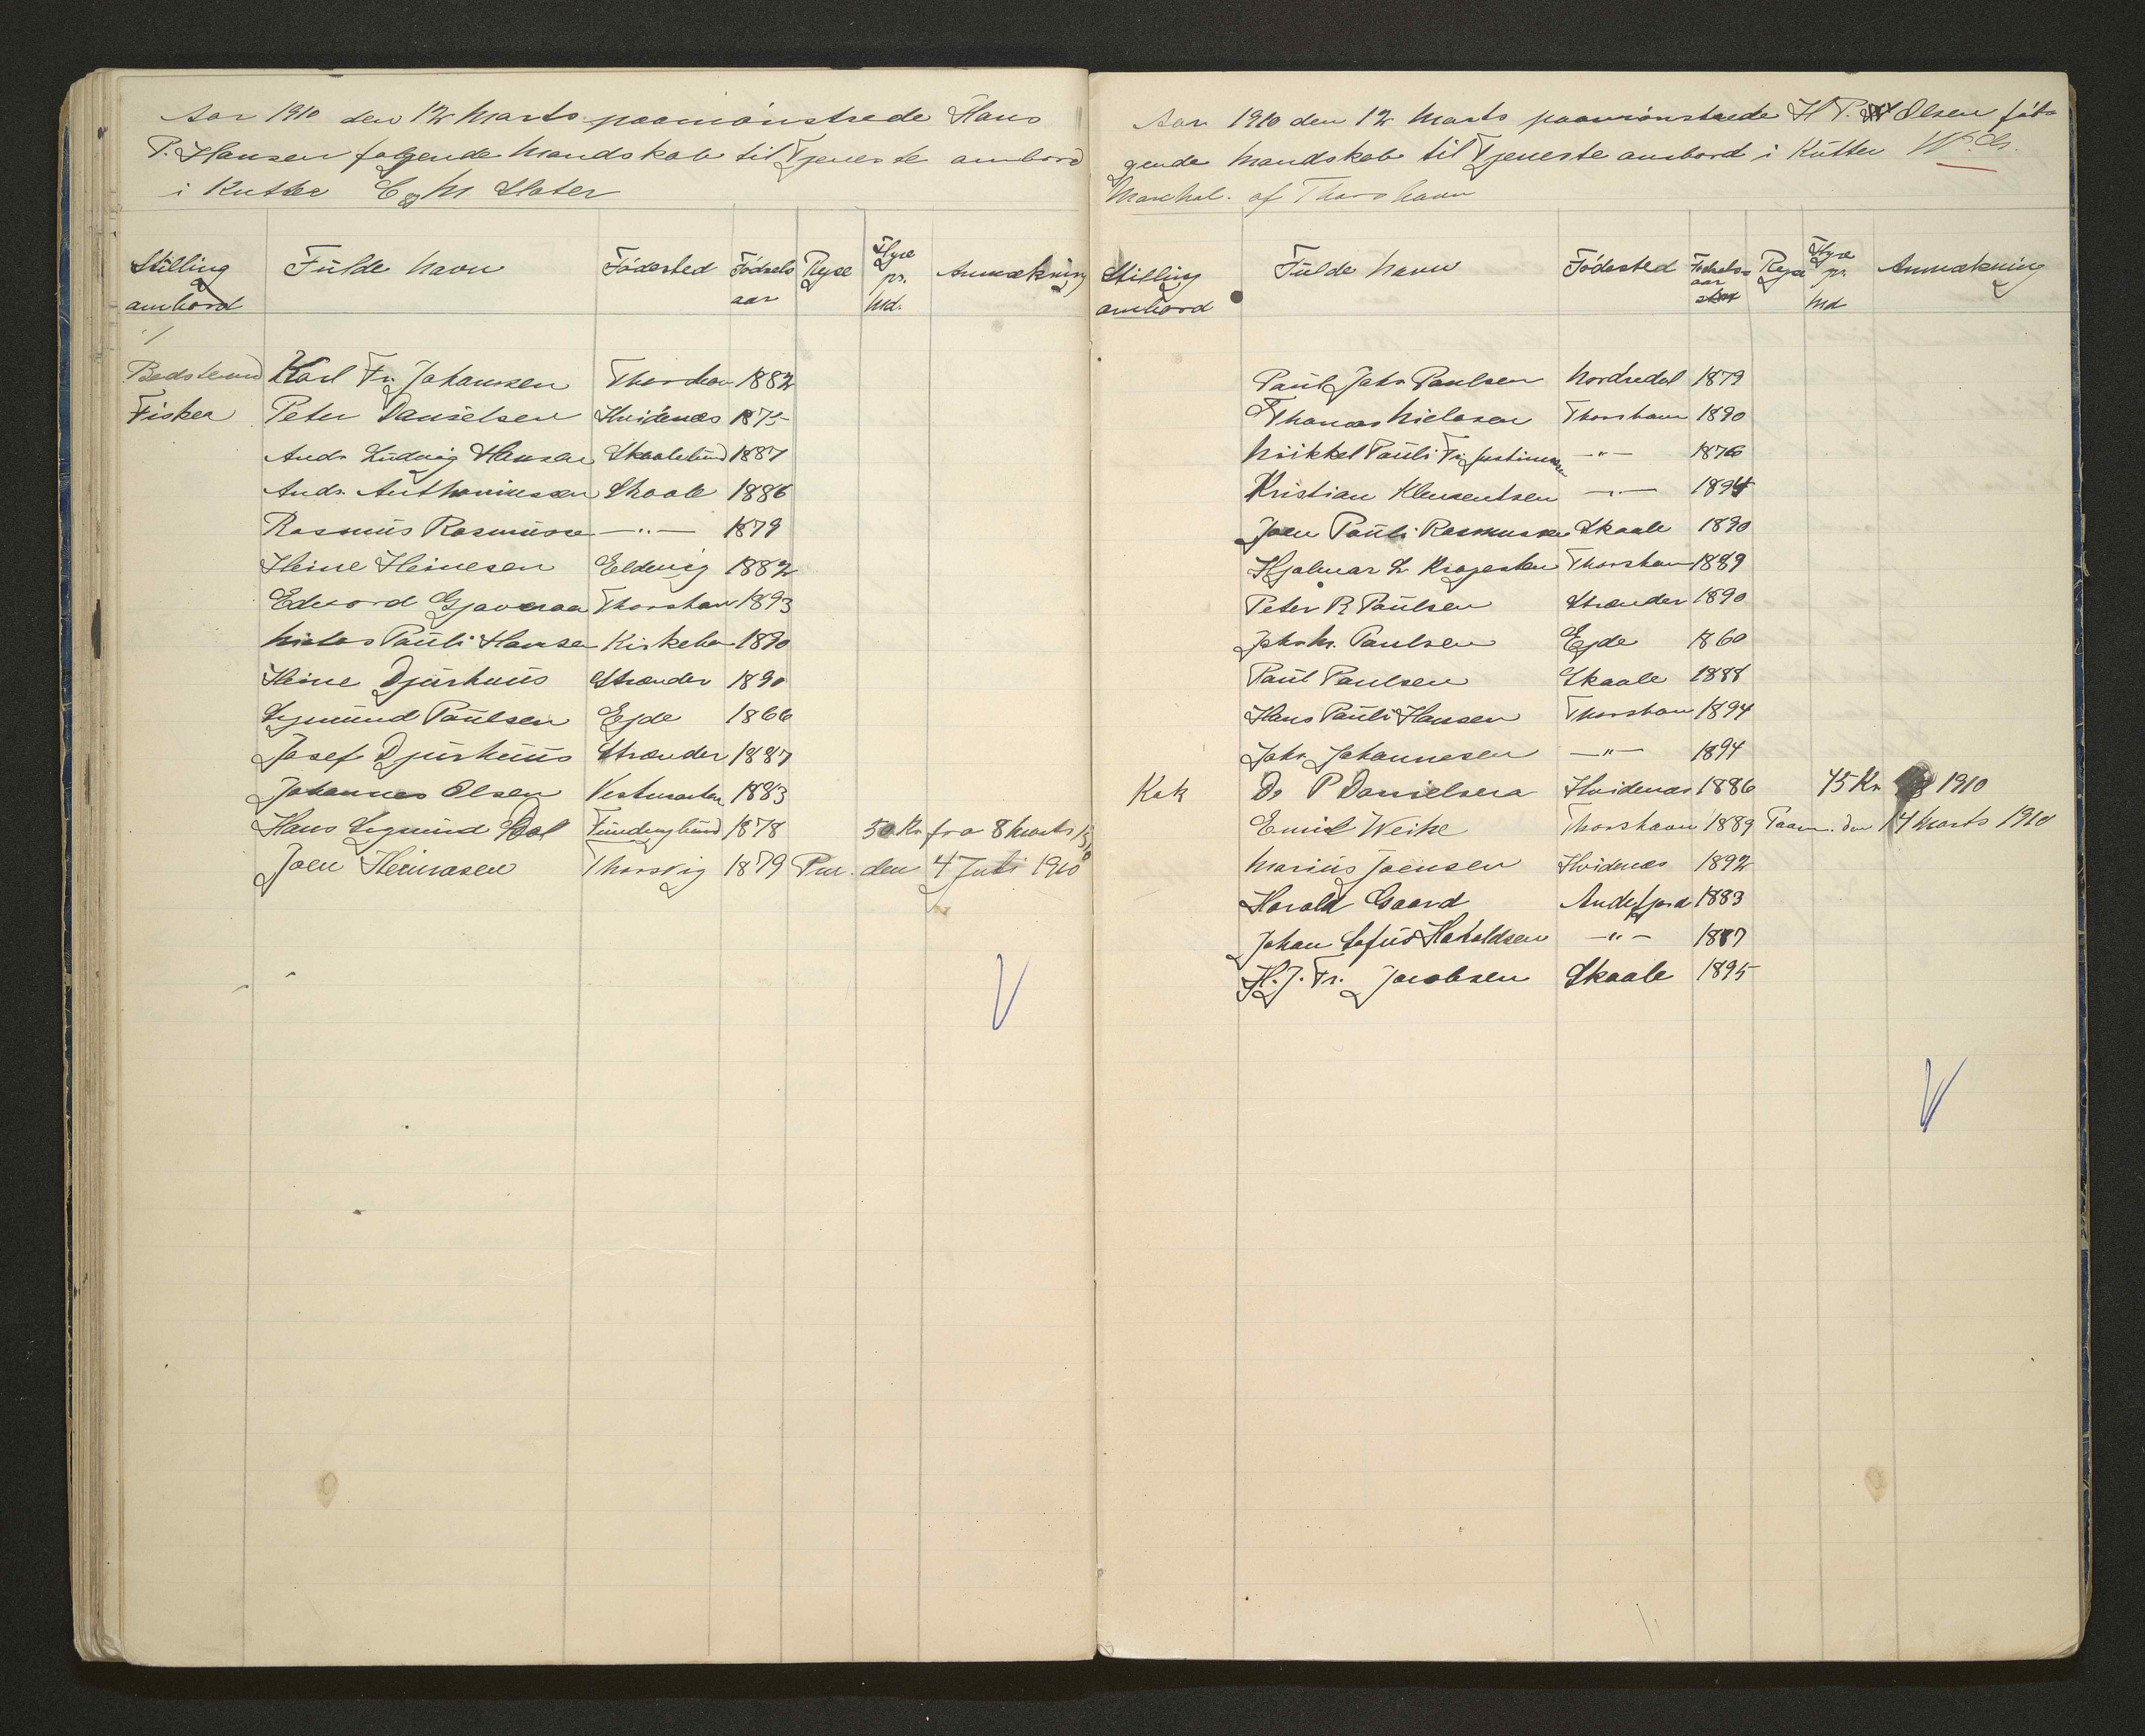 Aar 1910 den 12 Marts paamönstrede Hans
P. Hansen følgende Mandskab til Tjeneste ombord
i Kutter C & M Slater
Stilling ombord Fulde Navn Födested Födsels aar Rejse Hyre pr. Md. Anmærkning
Bedstemand Karl Fr. Johansen Thorshavn 1882
Fisker Peter Danielsen Hvidenæs 1875
Andr. Ludvig Hansen 1887
Andr. Anthoniussen Skaale 1886
Rasmus Rasmussen —"— 1879
Heine Heinesen Eldevig 1882
Edvard Gjaveraa Thorshavn 1893
Niclas Pauli Hansen Kirkebø 1890
Heine Djurhuus Strænder 1890
Sigmund Paulsen Ejde 1866
Josef Djurhuus Strænder 1887
Johannes Olsen 1883
Hans Sigmund Dal 1878 50 Kr fra 8 Marts 1910
Joen Heinasen Thorsvig 1879 Pm. den 4 Juli 1910
Aar 1910 den 12 Marts paamönstrede H P. Olsen föl-
gende Mandskab til Tjeneste ombord i Kutter
af Thorshavn
Stilling ombord Fulde Navn Födested Födsels- aar Rejse Hyre pr. Md Anmærkning
Paul Johs Paulsen Nordredal 1879
Thomas Nielasen Thorshavn 1890
Mikkel Pauli Fr. Justinussen —"— 1876
Kristian Klementsen —"— 1894
Joen Pauli Rasmussen Skaale 1890
Hjalmar L. Krogesten Thorshavn 1889
Peter R Paulsen Strænder 1890
Johs M. Paulsen Ejde 1860
Paul Paulsen Skaale 1888
Hans Pauli Hansen Thorshavn 1894
Johs Johannesen —"— 1894
Kok D. P Danielsen Hvidenæs 1886 45 Kr 1910
Emil Weihe Thorshavn 1889 Paam. den 14 Marts 1910
Marius Joensen Hvidenæs 1892
Harald Gaard Andefjord 1883
Johan Sofus Haraldsen —"— 1887
H. J. Fr. Jacobsen Skaale 1895